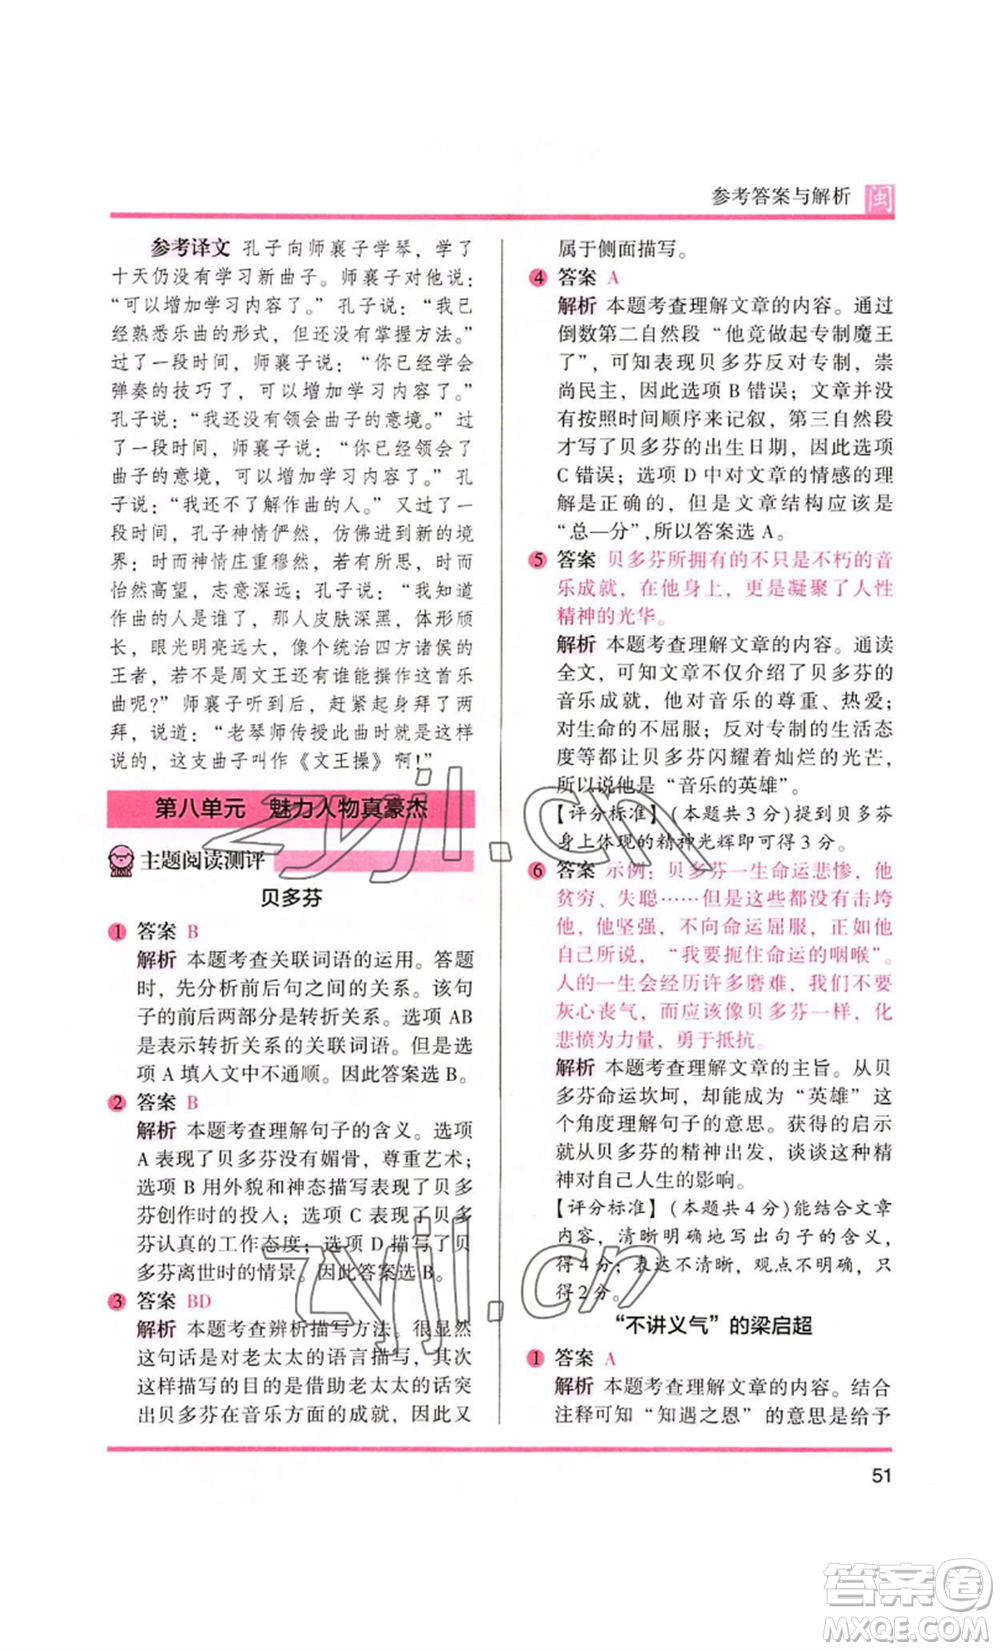 参考答案与解析 闽
参考译文 孔子向师襄子学琴，学了
十天仍没有学习新曲子。师襄子对他说：
“可以增加学习内容了。”孔子说：“我已
经熟悉乐曲的形式，但还没有掌握方法。”
过了一段时间，师襄子说：“你已经学会
弹奏的技巧了，可以增加学习内容了。”
孔子说：“我还没有领会曲子的意境。”过
了一段时间，师襄子说：“你已经领会了
曲子的意境，可以增加学习内容了。”孔
子说：“我还不了解作曲的人。”又过了一
段时间，孔子神情俨然，仿佛进到新的境
界：时而神情庄重穆然，若有所思，时而
怡然高望，志意深远；孔子说：“我知道
作曲的人是谁了，那人皮肤深黑，体形颀
长，眼光明亮远大，像个统治四方诸侯的
王者，若不是周文王还有谁能撰作这首乐
曲呢？”师襄子听到后，赶紧起身拜了两
拜，说道：“老琴师传授此曲时就是这样
说的，这支曲子叫作《文王操》啊！”
第八单元 魅力人物真豪杰
主题阅读测评
贝多芬
1 答案 B
解析 本题考查关联词语的运用。答题
时，先分析前后句之间的关系。该句
子的前后两部分是转折关系。选项 AB
是表示转折关系的关联词语。但是选
项 A 填入文中不通顺。因此答案选 B。
2 答案 B
解析 本题考查理解句子的含义。选项
A 表现了贝多芬没有媚骨，尊重艺术；
选项 B 用外貌和神态描写表现了贝多
芬创作时的投入；选项 C 表现了贝多
芬认真的工作态度；选项 D 描写了贝
多芬离世时的情景。因此答案选 B。
3 答案 BD
解析 本题考查辨析描写方法。很显然
这句话是对老太太的语言描写，其次
这样描写的目的是借助老太太的话突
出贝多芬在音乐方面的成就，因此又
属于侧面描写。
4 答案 A
解析 本题考查理解文章的内容。通过
倒数第二自然段“他竟做起专制魔王
了”，可知表现贝多芬反对专制，崇
尚民主，因此选项 B 错误；文章并没
有按照时间顺序来记叙，第三自然段
才写了贝多芬的出生日期，因此选项
C 错误；选项 D 中对文章的情感的理
解是正确的，但是文章结构应该是
“总—分”，所以答案选 A。
5 答案 贝多芬所拥有的不只是不朽的音
乐成就，在他身上，更是凝聚了人性
精神的光华。
解析 本题考查理解文章的内容。通读
全文，可知文章不仅介绍了贝多芬的
音乐成就，他对音乐的尊重、热爱；
对生命的不屈服；反对专制的生活态
度等都让贝多芬闪耀着灿烂的光芒，
所以说他是“音乐的英雄”。
【评分标准】（本题共 3 分）提到贝多芬
身上体现的精神光辉即可得 3 分。
6 答案 示例：贝多芬一生命运悲惨，他
贫穷、失聪……但这些都没有击垮
他，他坚强，不向命运屈服，正如他
自己所说，“我要扼住命运的咽喉”。
人的一生会经历许多磨难，我们不要
灰心丧气，而应该像贝多芬一样，化
悲愤为力量，勇于抵抗。
解析 本题考查理解文章的主旨。从贝
多芬命运坎坷，却能成为“英雄”这
个角度理解句子的意思。获得的启示
就从贝多芬的精神出发，谈谈这种精
神对自己人生的影响。
【评分标准】（本题共 4 分）能结合文章
内容，清晰明确地写出句子的含义，
得 4 分；表达不清晰，观点不明确，
只得 2 分。
“不讲义气”的梁启超
1 答案 A
解析 本题考查理解文章的内容。结合
注释可知“知遇之恩”的意思是给予
51
zyjl.cn
zyjl.cn
答案卷
MXQE.COM